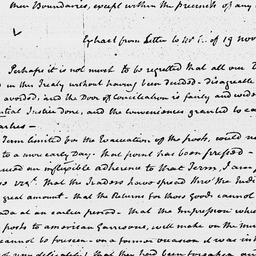 their Boundaries, except within the precincts of any
Extract from Letter to                of 19 nov
Perhaps it is not much to be regretted that all our
in this Treaty without having been decided - disagreeable
avoided, and the Door of conciliation is fairly and wide
ential Justice done, and the conveniences granted to
arkes -
Term limited for the Evacuation of the posts, could
to a more early Day - that point has been pressed -
an inflexible adherence to that Term, I am
vizt. that the Traders have spread thro' the Indi
great amount - that the Returns for those Goods cannot
ada at an earlier period - that the Impression whi
posts to american Garrisons, will make on the
cannot be foreseen - on a former occasion it was
that they had been forsaken